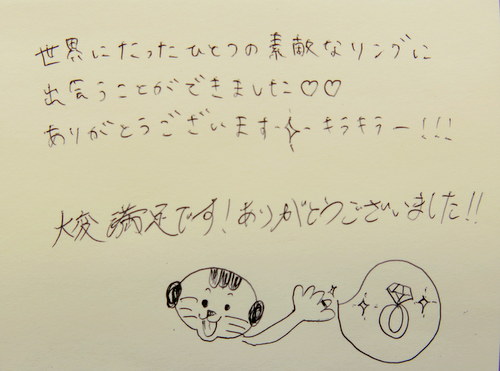 世界にたったひとつの素敵なリングに
出会うことができました♡♡
ありがとうございます✧キラキラー!!!
大変満足です!ありがとうございました!!